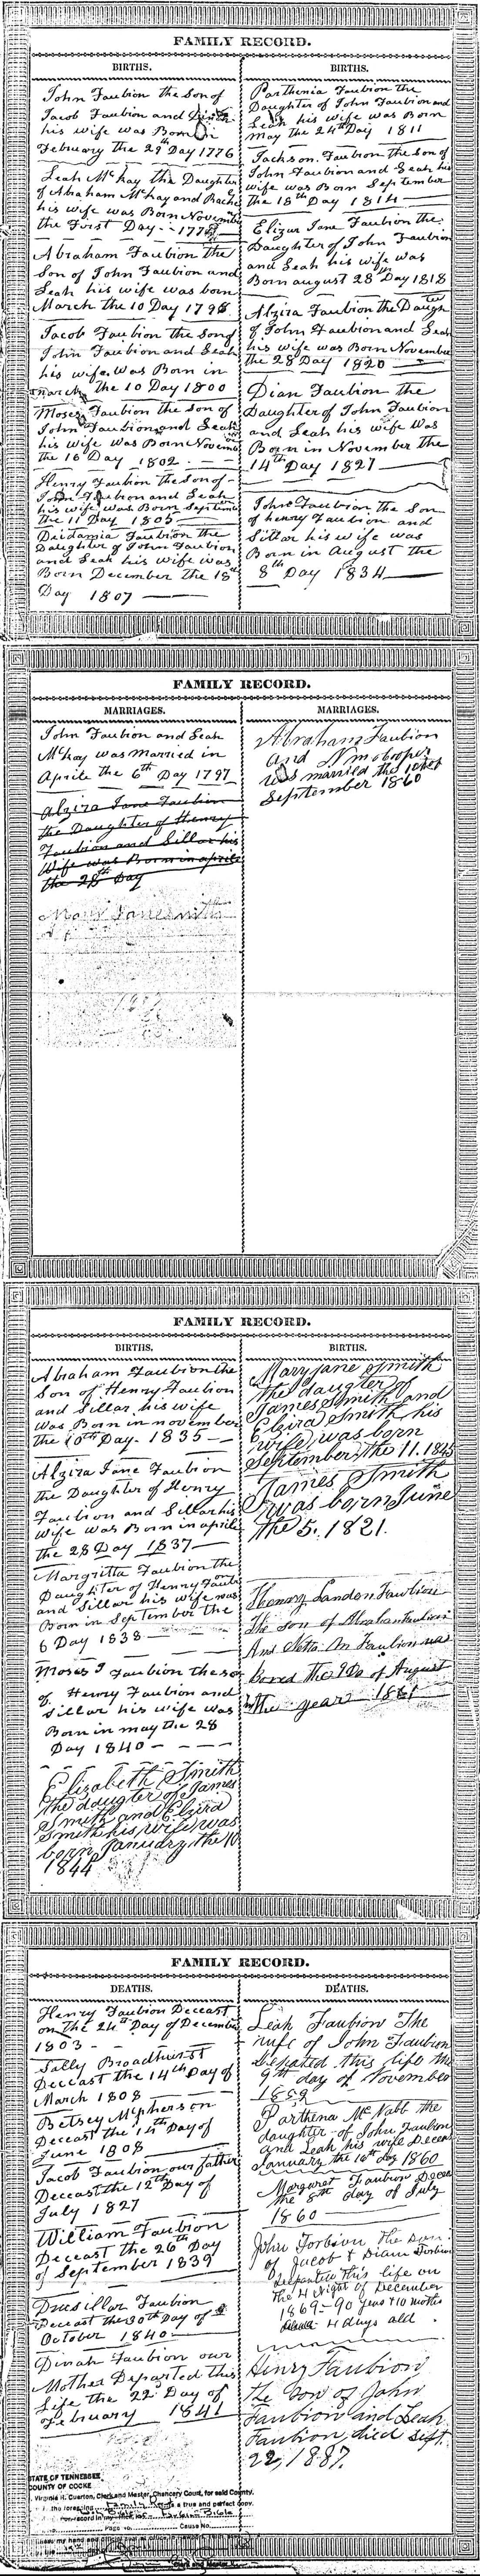 FAMILY RECORD.
BIRTHS.
John Faubion the son of
Jacob Faubion and
his wife was Born in
February the 29th Day 1776
Leah McKay the Daughter
of Abraham McKay and Rachel
his wife was Born November
the First Day
Abraham Faubion the
Son of John Faubion and
Leah his wife was born
March the 10 Day 1798
Jacob Faubion the son of
John Faubion and Leah
his wife was Born in
march the 10 Day 1800
Moses Faubion the son of
John Faubion and Leah
his wife was Born Novem
the 16 Day 1802
Henry Faubion the son of
John Faubion and Leah
his wife was Born Septem
the 11 Day 1805
Deidamia Faubion the
Daughter of John Faubion
and Leah his wife was
Born December the 18th
Day 1807
BIRTHS.
Parthenia Faubion the
Daughter of John Faubion and
Leah his wife was Born
may the 24th Day 1811
Jackson Faubion the son of
John Faubion and Leah his
wife was Born September
the 18th Day 1814
Elizur Jane Faubion the
Daughter of John Faubion
and Leah his wife was
Born august 28th Day 1818
Alzira Faubion the Daugh
ter
of John Faubion and Leah
his wife was Born November
the 28 Day 1820
Dian Faubion the
Daughter of John Faubion
and Leah his wife was
Born in November the
14th Day 1827
John Faubion the son
of henry Faubion and
Sillar his wife was
Born in August the
8th Day 1834
FAMILY RECORD.
MARRIAGES.
John Faubion and Leah
McKay was married in
Aprile the 6th Day 1797
Alzira Jane Faubion
the Daughter of Henry
Faubion and Sillar his
Wife was Born in aprile
the 28th Day
Mary Jane Smith
MARRIAGES.
Abraham Faubion
and
was married the
September 1860
FAMILY RECORD.
BIRTHS.
Abraham Faubion the
Son of Henry Faubion
and Sillar his wife
was Born in november
the 10th Day 1835
Alzira Jane Faubion
the Daughter of Henry
Faubion and Sillar his
Wife was Born in aprile
the 28 Day 1837
Margritta Faubion the
Daughter of Henry Faubi
and Sillar his wife was
Born in September the
6 Day 1838
Moses J Faubion the son
of Henry Faubion and
Sillar his wife was
Born in may the 28
Day 1840
Elizabeth Smith
the daugter of James
Smith and Elzird
Smith his wife was
born January the 10
1844
BIRTHS.
Mary Jane Smith
the daugter of
James Smith and
Elzira Smith his
wife was born
September the 11. 1845
James Smith
was born June
the 5. 1821.
Henry Landon Faubion
The son of Abraham Faubion
And Faubion was
borned the 9 Da of August
in the year 1861
FAMILY RECORD.
DEATHS.
Henry Faubion Deceast
on the 24th Day of December
1803
Sally Broadhurst
Deceast the 14th Day of
March 1808
Betsey McPherson
Deceast the 14th Day of
June 1808
Jacob Faubion our father
Deceast the 12th Day of
July 1827
William Faubion
Deceast the 26th Day
of September 1839
Drusillar Faubion
Deceast the 30th Day of
October 1840
Dinah Faubion our
Mother Departed this
Life the 22d Day of
February 1841
DEATHS.
Leah Faubion The
wife of John Faubion
Depated this life the
9th day of November
1859
Parthena McNabb the
daughter of John Faubion
and Leah his wife Deceas
January the 10th day 1860
Margaret Faubion Deceas
the 8th day of July
1860
John Forbion the son
of Jacob & Dian Forbion
Departed This life on
The 4 night of December
1869 - 90 years 10 months
4 days old.
Henry Faubion
the Son of John
Faubion and Leah
Faubion died sept.
22, 1887.
STATE OF TENNESSEE
COUNTY OF COCKE
Virginia H. Cuerton, Clerk and Master, Chancery Court, for said County,
the foregoing Family is a true and perfect copy
record in my office Bible
Page No. Cause No.